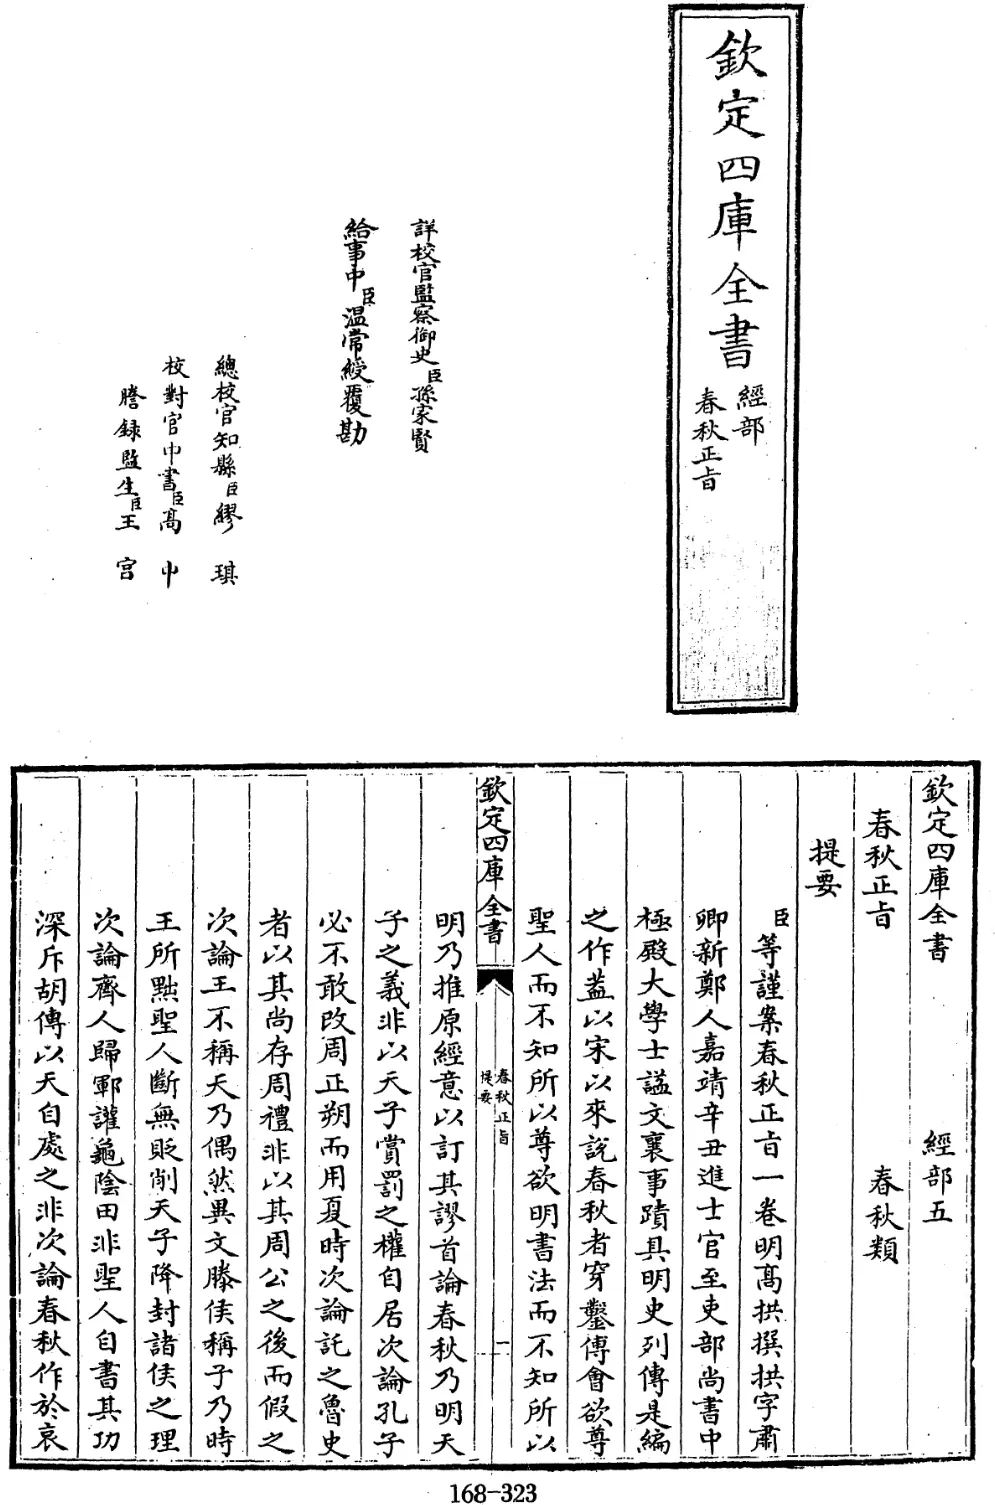 欽定四庫全書
經部
春秋正旨
詳校官監察御史臣孫家賢
給事中臣温常綬覆勘
總校官知縣臣繆琪
校對官中書臣高中
謄録監生臣王宫
欽定四庫全書 經部五
春秋正旨 春秋類
提要
臣等謹案春秋正旨一卷明髙拱撰拱字肅
卿新鄭人嘉靖辛丑進士官至吏部尚書中
極殿大學士謚文襄事蹟具明史列傳是編
之作蓋以宋以來説春秋者穿鑿傅會欲尊
聖人而不知所以尊欲明書法而不知所以
欽定四庫全書
春秋正旨
提要
一
明乃推原經意以訂其謬首論春秋乃明天
子之義非以天子賞罰之權自居次論孔子
必不敢改周正朔而用夏時次論託之魯史
者以其尚存周禮非以其周公之後而假之
次論王不稱天乃偶然異文滕侯稱子乃時
王所黜聖人斷無貶削天子降封諸侯之理
次論齊人歸鄆讙龜陰田非聖人自書其功
深斥胡傳以天自處之非次論春秋作於哀
168-323